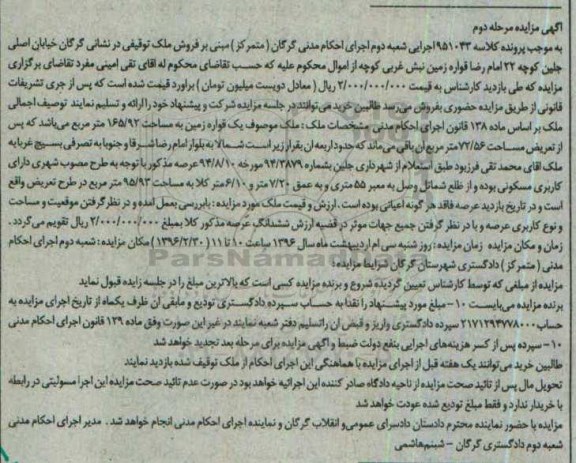 آگهی مزایده مرحله دوم
به موجب پرونده کلاسه ۹۵۱۰۴۳ اجرایی شعبه دوم اجرای احکام مدنی گرگان ( متمرکز ) مبنی بر فروش ملک توقیفی در نشانی گرگان خیابان اصلی
جلین کوچه ۲۲ امام رضا قواره زمین نبش غربی کوچه از اموال محکوم علیه که حسب تقاضای محکوم له اقای تقی امینی مفرد تقاضای برگزاری
مزایده که طی بازدید کارشناس به قیمت ۲/۰۰۰/۰۰۰/۰۰۰ ریال ( معادل دویست میلیون تومان ) براورد قیمت شده است که پس از جری تشریفات
قانونی از طریق مزایده حضوری بفروش می رسد طالبین خرید می توانند در جلسه مزایده شرکت و پیشنهاد خود را ارائه و تسلیم نمایند توصیف اجمالی
ملک بر اساس ماده ۱۳۸ قانون اجرای احکام مدنی مشخصات ملک : ملک موصوف یک قواره زمین به مساحت ۱۶۵/۹۲ متر مربع می باشد که پس
از تعریض مساحت ۷۲/۵۶ متر مربع آن باقی می ماند که حدود اربعه ان بقرار زیر است شمالا به بلوار امام رضا شرقا و جنوبا به تصرفی بسیج غربا به
ملک اقای محمد تقی فرزبود طبق استعلام از شهرداری جلین بشماره ۹۴/۳۸۷۹ مورخه ۹۴/۸/۱۰ عرصه مذکور با توجه به طرح مصوب شهری دارای
کاربری مسکونی بوده و از ظلع شمالی وصل به معبر ۵۵ متری و به عمق ۷/۲۰ متر و ۶/۱۰ متر کلا به مساحت ۹۵/۹۳ متر مربع در طرح تعریض واقع
است و در تاریخ بازدید عرصه فاقد هر گونه اعیانی بوده است . ارزش و قیمت ملک مورد مزایده : با بررسی بعمل امده و در نظر گرفتن موقعیت و مساحت
و نوع کاربری عرصه و با در نظر گرفتن جمیع جهات موثر در قضیه ارزش ششدانگ عرصه مذکور کلا بمبلغ ۲/۰۰۰/۰۰۰/۰۰۰ ریال تقویم می گردد .
زمان و مکان مزایده زمان مزایده : روز شنبه سی ام اردیبهشت ماه سال ۱۳۹۶ ساعت ۱۰ تا ۱۱ ( ۱۳۹۶/۲/۳۰ ) مکان مزایده : شعبه دوم اجرای احکام
مدنی ( متمرکز ) دادگستری شهرستان گرگان شرایط مزایده :
مزایده از مبلغی که توسط کارشناس تعیین گردیده شروع و برنده مزایده کسی است که بالاترین مبلغ را در جلسه زایده قبول نماید
برنده مزایده می بایست ۱۰ - مبلغ مورد پیشنهاد را نقدا به حساب سپرده دادگستری تودیع و مابقی ان ظرف یکماه از تاریخ اجرای مزایده به
حساب ۲۱۷۱۲۹۴۷۷۸۰۰۰ سپرده دادگستری واریز و قبض ان را تسلیم دفتر شعبه نمایند در غیر این صورت وفق ماده ۱۲۹ قانون اجرای احکام مدنی
۱۰ - سپرده پس از کسر هزینه های اجرایی بنفع دولت ضبط و اگهی مزایده برای مرحله بعد تجدید خواهد شد
طالبین خرید می توانند یک هفته قبل از اجرای مزایده با هماهنگی این اجرای احکام از ملک توقیف شده بازدید نمایند
تحویل مال پس از تائید صحت مزایده از ناحیه دادگاه صادر کننده این اجرائیه خواهد بود در صورت عدم تائید صحت مزایده این اجرا مسولیتی در رابطه
با خریدار ندارد و فقط مبلغ تودیع شده عودت خواهد شد
مزایده با حضور نماینده محترم دادستان دادسرای عمومی و انقلاب گرگان و نماینده اجرای احکام مدنی انجام خواهد شد . مدیر اجرای احکام مدنی
شعبه دوم دادگستری گرگان - شبنم هاشمی